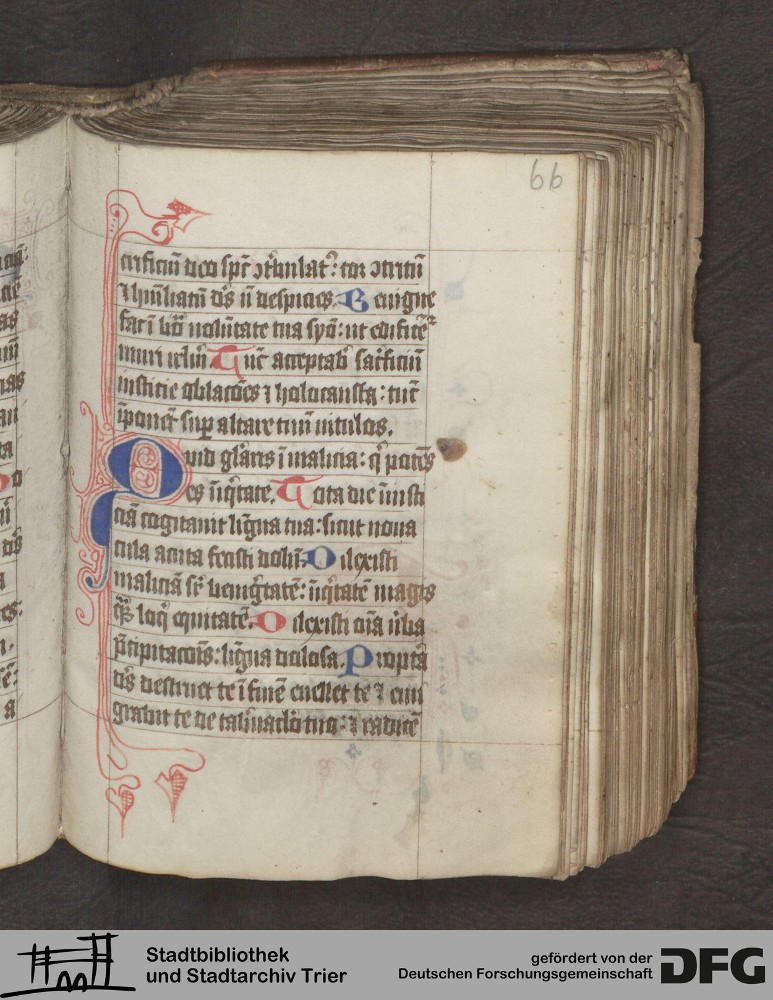 66
crificiũ deo spr̃ ↄt'bulatꝰ: cor ↄtritũ
⁊ huĩliatũ dš nõ despicies. Benigne
fac ĩ bõa volũtate tua syõ: ut edificẽt
muri irl̃m. Tũc acceptab' sac̃ficiũ
iusticie oblacões ⁊ holocausta: tũc
ĩponẽt suꝑ altare tuũ vitulos.
Quid gl̃aris ĩ malicia: q̃ potẽs
es iniq̃tate. Tota die iniusti
ciã cogitauit lĩgua tua: sicut noua
cula acuta fecisti dolũ. Dilexisti
maliciã sr̃ benig̃tatẽ: iniq̃tatẽ magis
q̃ꝫ loq̃ equitatẽ. Dilexisti oĩa v̾ba
p̃cipitacoĩs: lĩgua dolosa. Propt̾ã
dš destruet te ĩ finẽ euellet te ⁊ emi
grabit te de tab̾nac̃lo tuo: ⁊ radicẽ
Stadtbibliothek
und Stadtarchiv Trier
gefördert von der
Deutschen Forschungsgemeinschaft
DFG